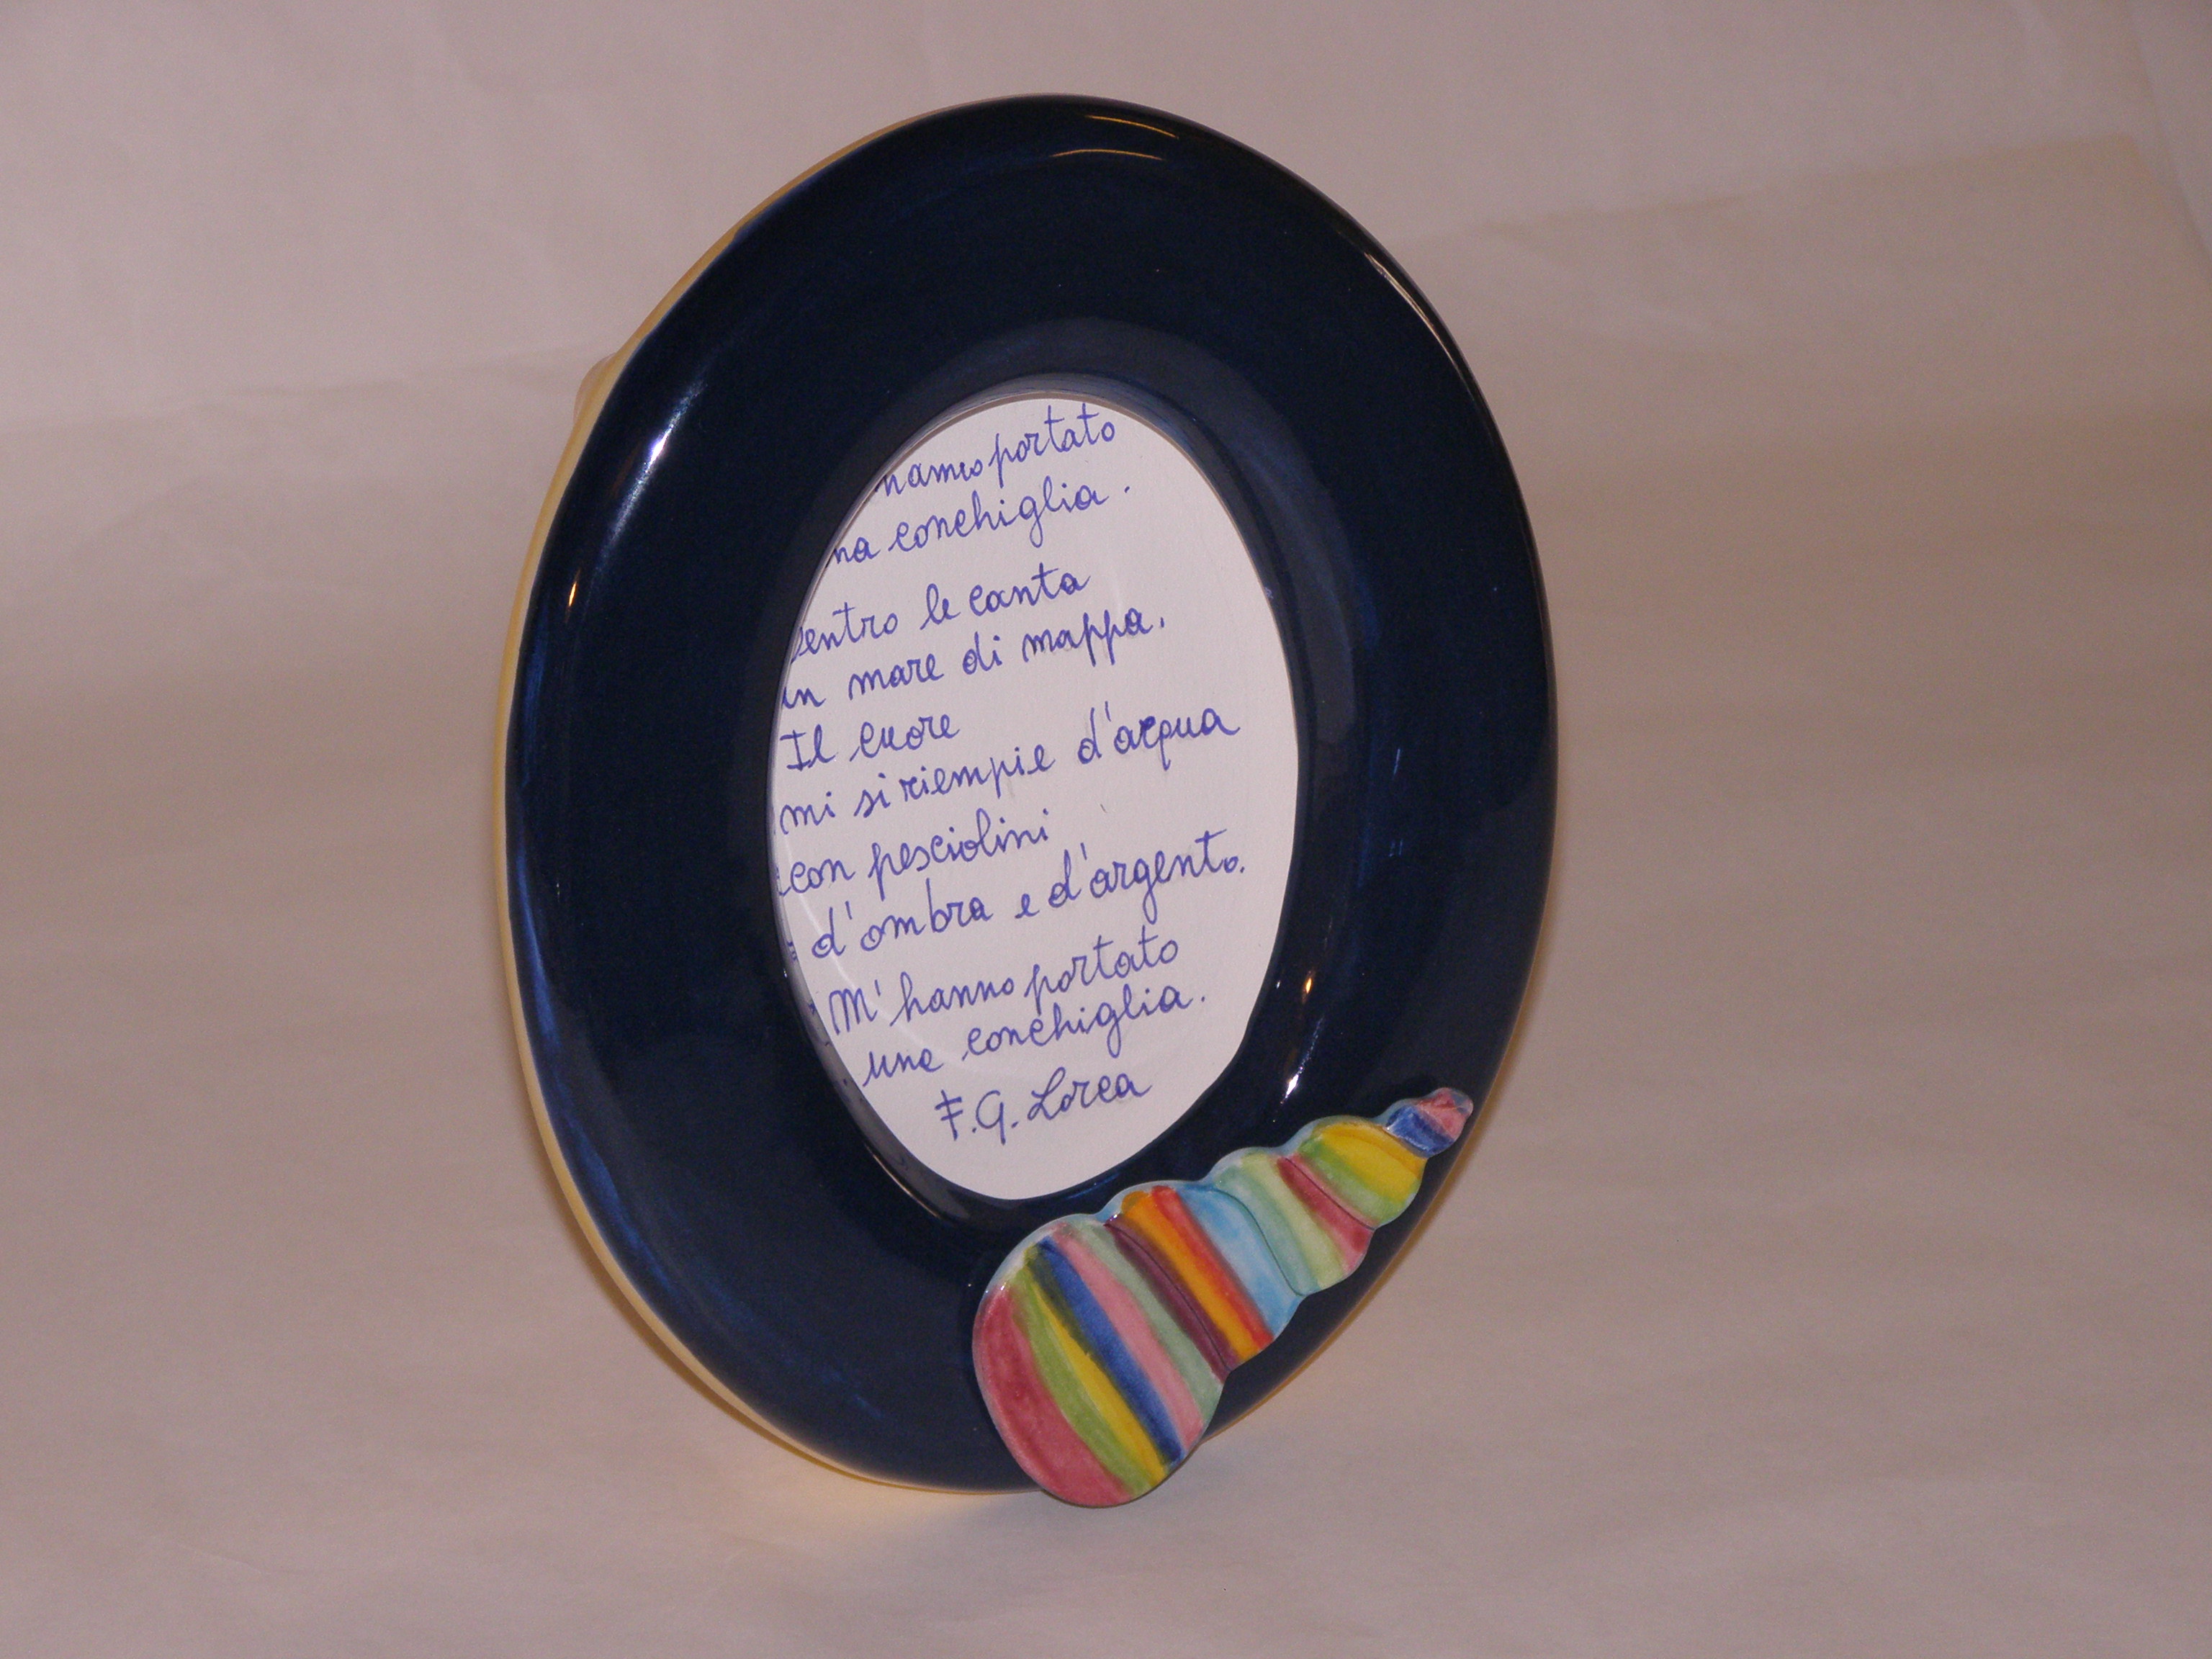 hanno portato
na conchiglia.
entro le canta
un mare di mappa.
Il cuore
mi si riempie d'acqua
con pesciolini
d'ombra e d'argento.
M'hanno portato
una conchiglia.
F.G. Lorca